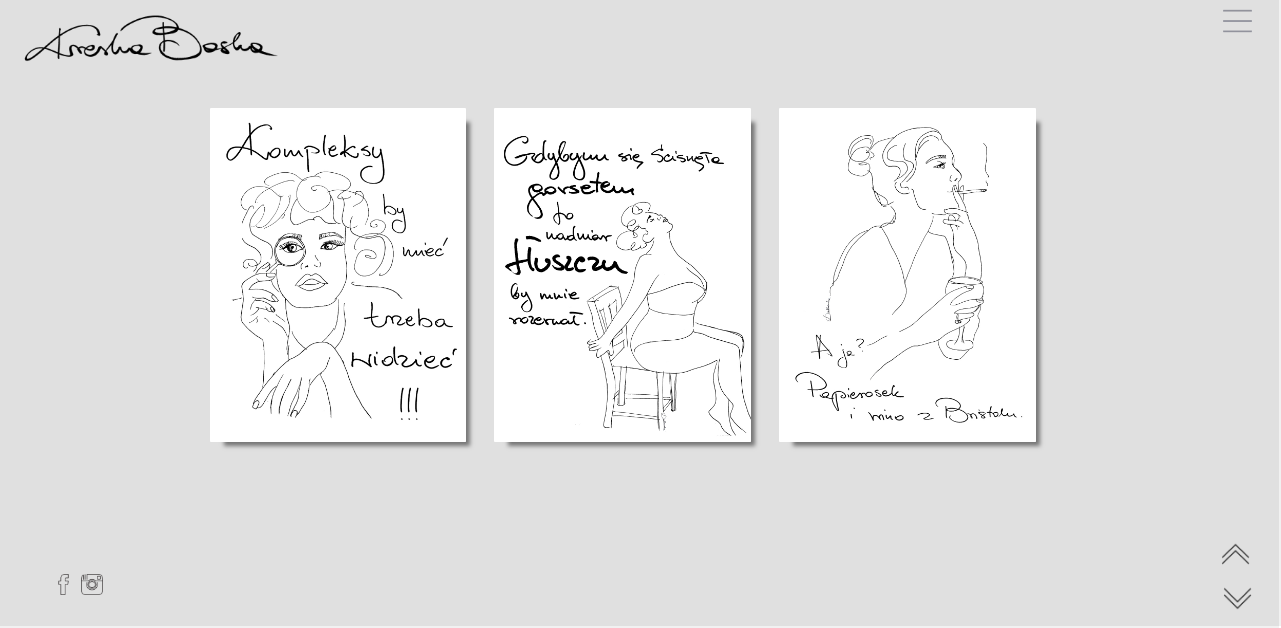 Kompleksy
by
mieć
trzeba
widzieć
!!!
Gdybym się ścisnęła
gorsetem
to
nadmiar
tłuszczu
by mnie
rozerwał.
A ja?
Papierosek
i wino z Bristolu.